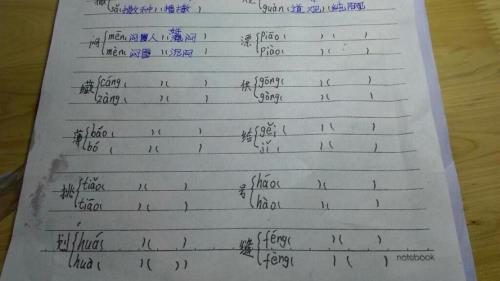 sǎ(撒种)(
guàn(
闷 mēn(闷人)(
漂 piāo(
mèn(闷雷)(
piào(
藏 cáng( )( )
供 gōng( )( )
zàng( )( )
gòng( )( )
薄 báo( )( )
给 gěi( )( )
bó( )( )
jǐ( )( )
挑 tiāo( )( )
号 háo( )( )
tiǎo( )( )
hào( )( )
划 huá( )( )
缝 féng( )( )
huà( )( )
fèng( )( )
notebook